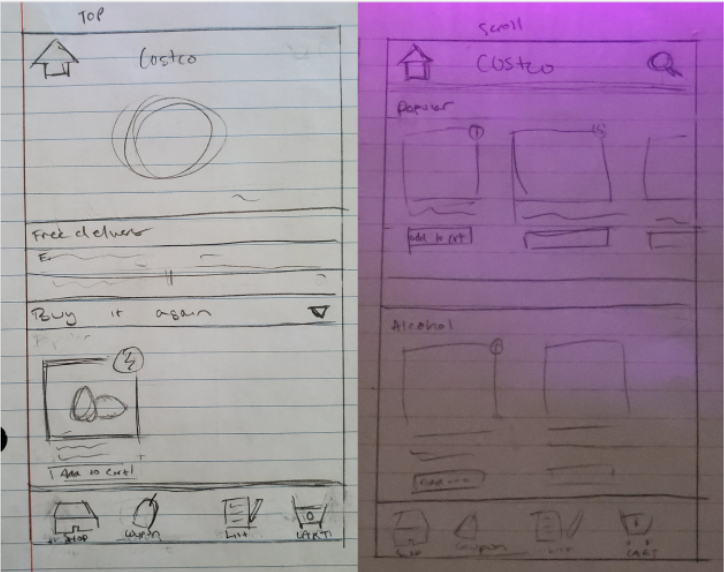 TOP
Costco
Free delivery
Buy it again
Add to cart
Shop
Coupon
List
CART
Scroll
Costco
Popular
add to cart
Alcohol
Shop
Coupon
List
CART